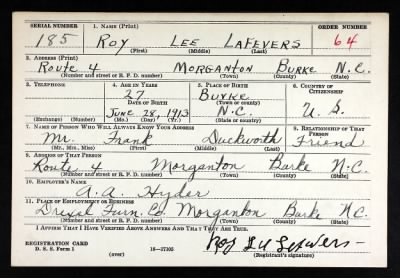 SERIAL NUMBER 1. NAME (Print) ORDER NUMBER
185 ROY LEE LAFEVERS 64
(First) (Middle) (Last)
2. ADDRESS (Print)
Route 4 MORGANTON BURKE N.C.
(Number and street or R. F. D. number) (Town) (County) (State)
3. TELEPHONE 4. AGE IN YEARS 5. PLACE OF BIRTH 6. COUNTRY OF CITIZENSHIP
27 Burke
DATE OF BIRTH (Town or county)
June 28, 1913 N.C. U. S.
(Exchange) (Number) (Mo.) (Day) (Yr.) (State or country)
7. NAME OF PERSON WHO WILL ALWAYS KNOW YOUR ADDRESS 8. RELATIONSHIP OF THAT PERSON
Mr. Frank Duckworth Friend
(Mr., Mrs., Miss) (First) (Middle) (Last)
9. ADDRESS OF THAT PERSON
Route 4 Morganton Burke N.C.
(Number and street or R. F. D. number) (Town) (County) (State)
10. EMPLOYER'S NAME
A. A. Hyder
11. PLACE OF EMPLOYMENT OR BUSINESS
Drexel Furn. Co. Morganton Burke N.C.
(Number and street or R. F. D. number) (Town) (County) (State)
I AFFIRM THAT I HAVE VERIFIED ABOVE ANSWERS AND THAT THEY ARE TRUE.
REGISTRATION CARD
D. S. S. Form 1 16-17105 Roy Lee Lefevers
(over) (Registrant's signature)